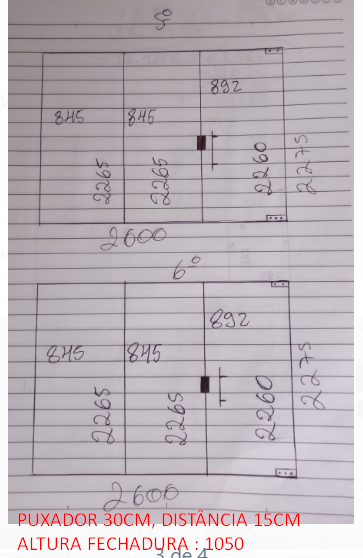 5º
892
845 845
2265 2265 2260 2275
2600
6º
892
845 845
2265 2265 2260 2275
2600
PUXADOR 30CM, DISTÂNCIA 15CM
ALTURA FECHADURA : 1050
3 de 4